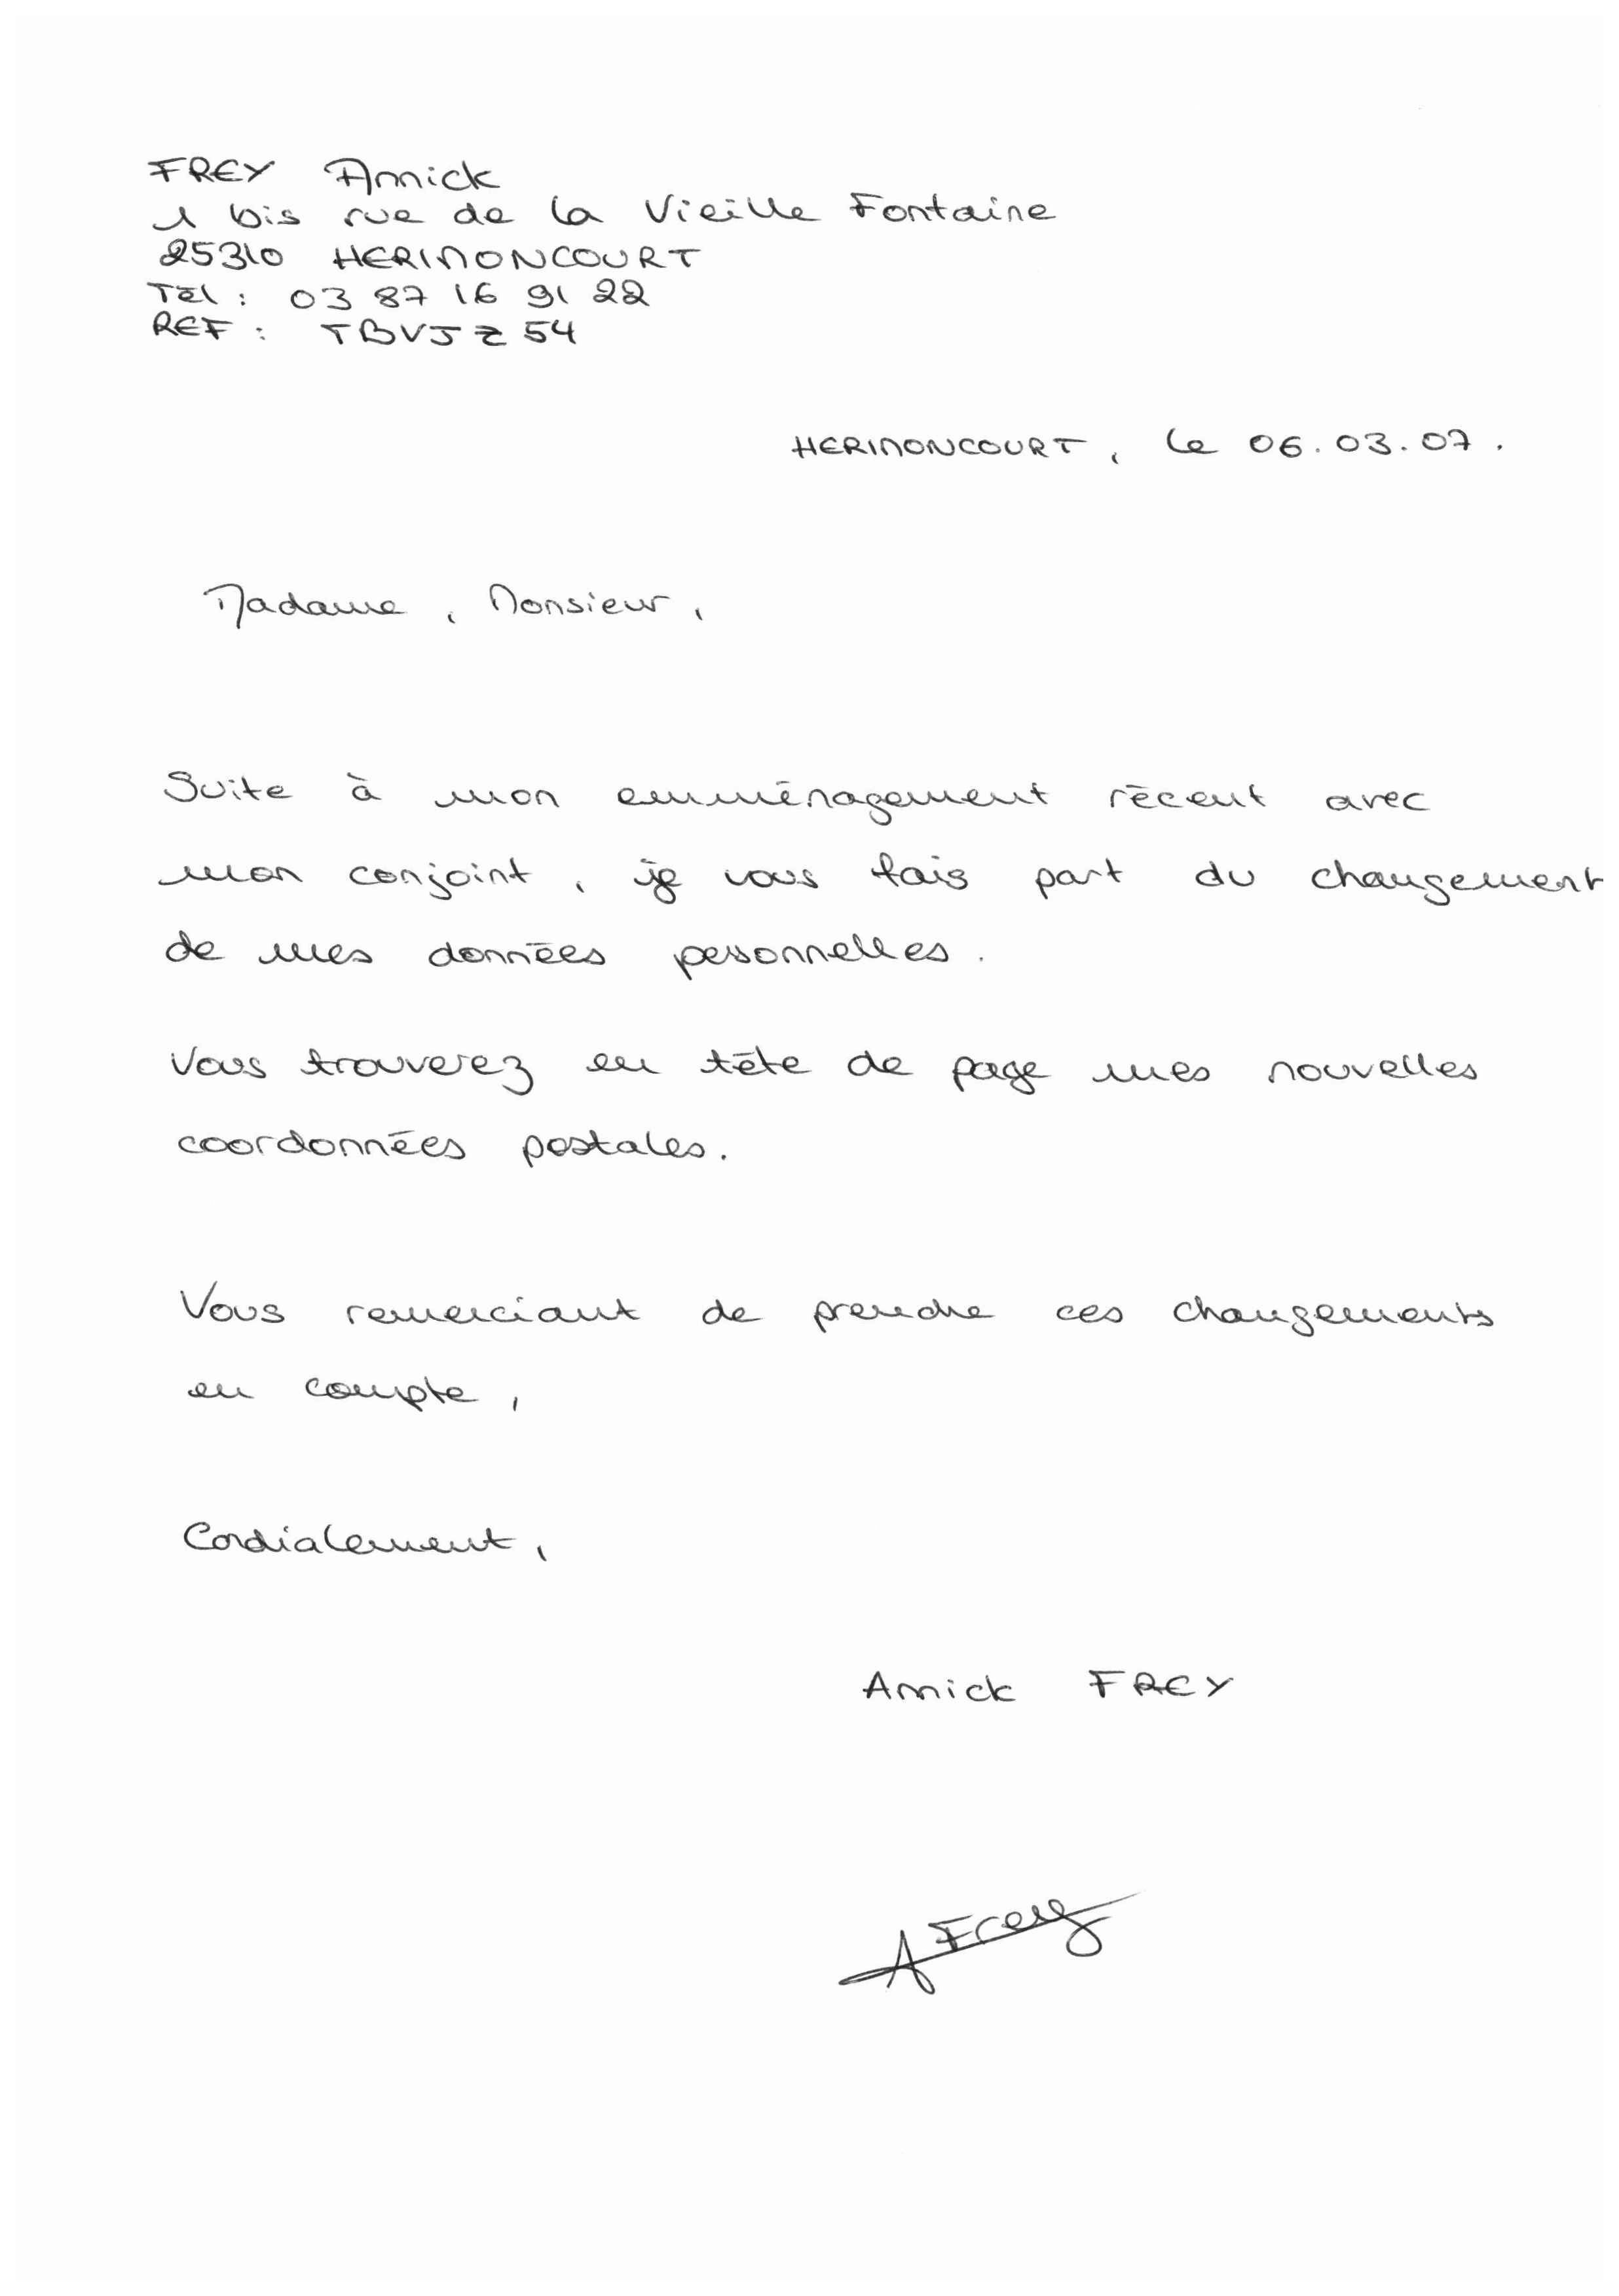 FREY Annick
1 bis rue de la Vieille Fontaine
25310 HERIMONCOURT
Tél : 03 87 16 91 22
REF : TBVJZ54
HERIMONCOURT, le 06.03.07.
Madame, Monsieur,
Suite à mon emménagement récent avec
mon conjoint, je vous fais part du changement
de mes données personnelles.
Vous trouverez en tête de page mes nouvelles
coordonnées postales.
Vous remerciant de prendre ces changements
en compte,
Cordialement,
Annick FREY
AFrey